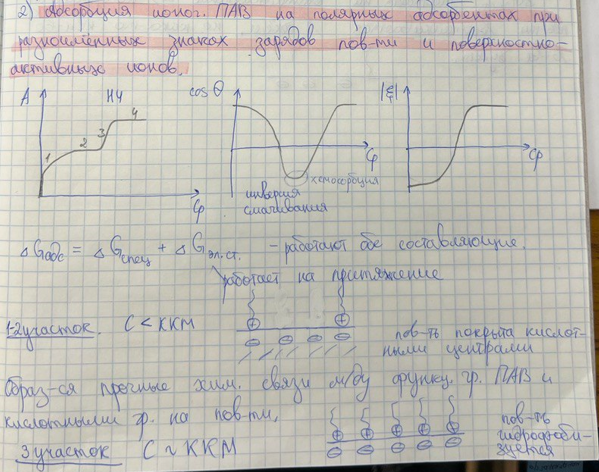 2) Адсорбция ионог. ПАВ на полярных адсорбентах при
разноимённых знаках зарядов пов-ти и поверхностно-
активных ионов.
A
H4
1
2
3
4
Cр
cos θ
Cр
хемосорбция
инверсия
смачивания
|ξ|
Cр
△Gадс = △Gспец + △Gэл.ст. - работают обе составляющие.
работает на притяжение
1-2 участок. C < ККМ
пов-ть покрыта кислот-
ными центрами
Образ-ся прочные хим. связи м/ду функц. гр. ПАВ и
кислотными гр. на пов-ти.
3 участок C ~ ККМ
пов-ть
гидрофоби-
зуется